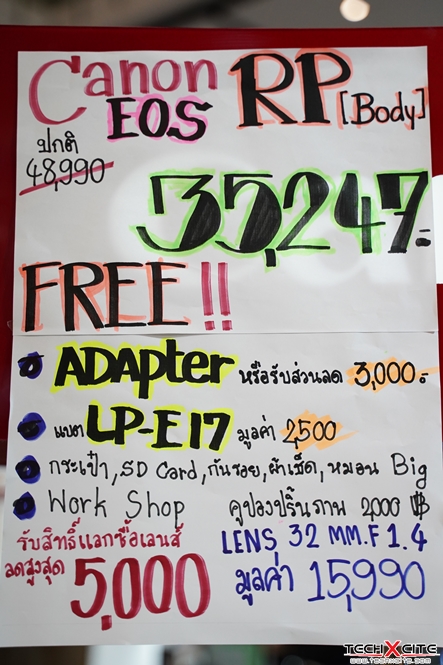 Canon EOS RP [Body]
ปกติ 48,990
35,247.-
FREE!!
ADApter หรือรับส่วนลด 3,000.-
แบต LP-E17 มูลค่า 2,500
กระเป๋า, SD Card, กันรอย, ผ้าเช็ด, หมอน Big
Work Shop คูปองปริ้นภาพ 2,000 ฿
รับสิทธิ์แลกซื้อเลนส์
ลดสูงสุด 5,000
LENS 32 MM.F 1.4
มูลค่า 15,990
TECHXCITE
www.techxcite.com